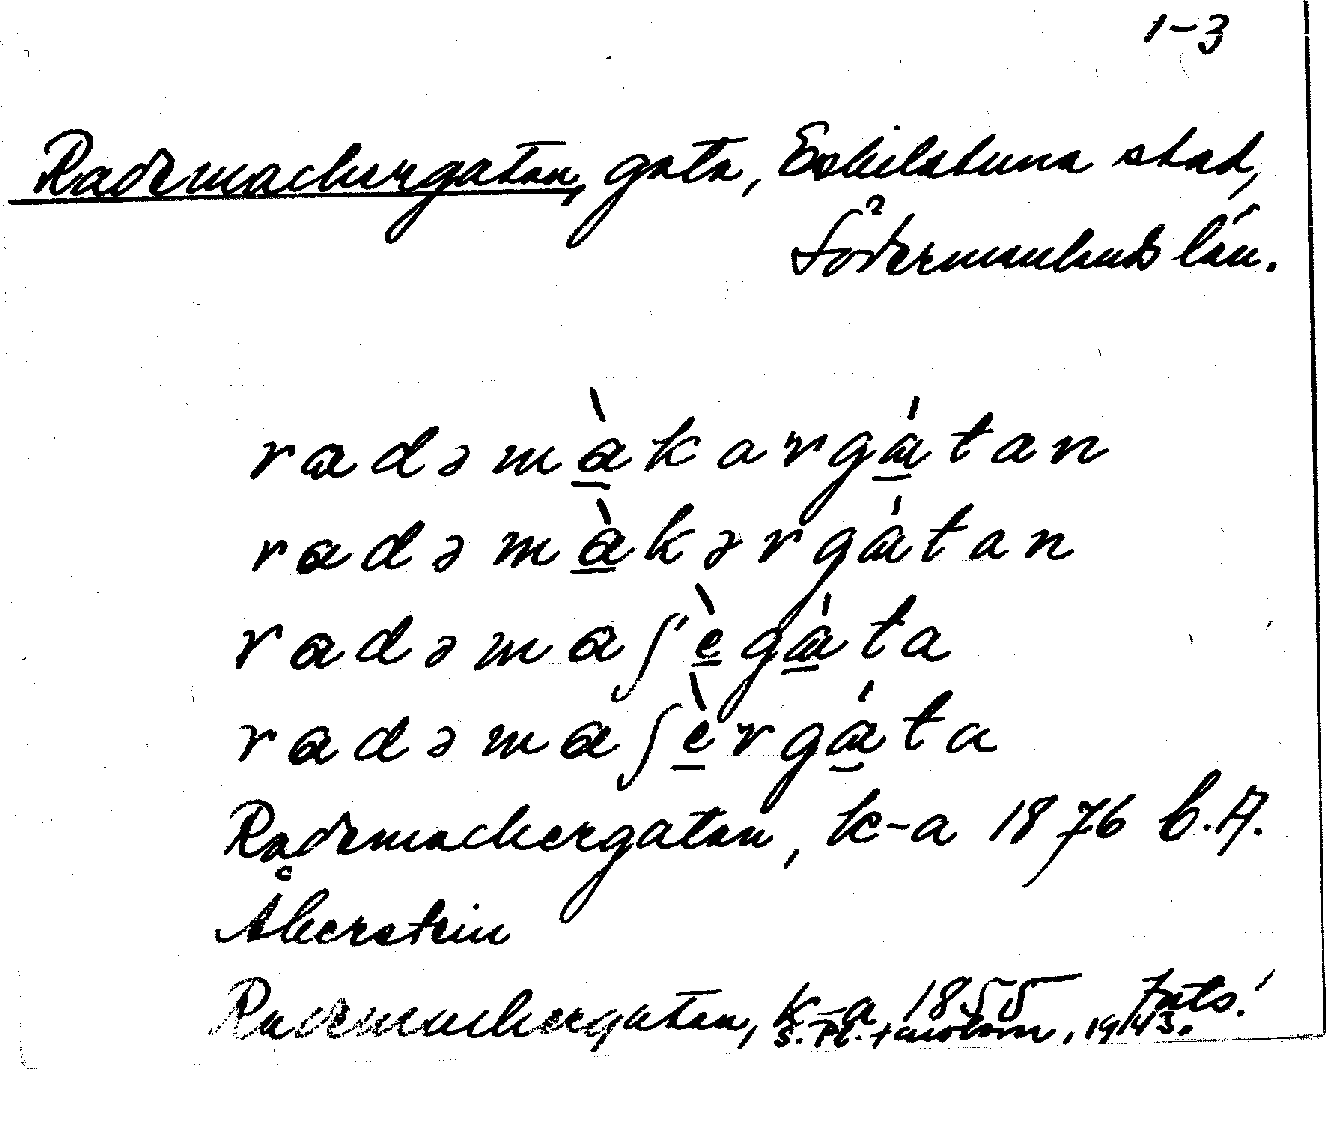 1-3
Rademachergatan, gata, Eskilstuna stad,
Södermanlands län.
radəmàkargátan
radəmàkərgátan
radəmaʃègáta
radəmaʃèrgáta
Rademachergatan, k-a 1876 b. A.
Åkerstein
Rademachergatan, k-a 1855
1943.